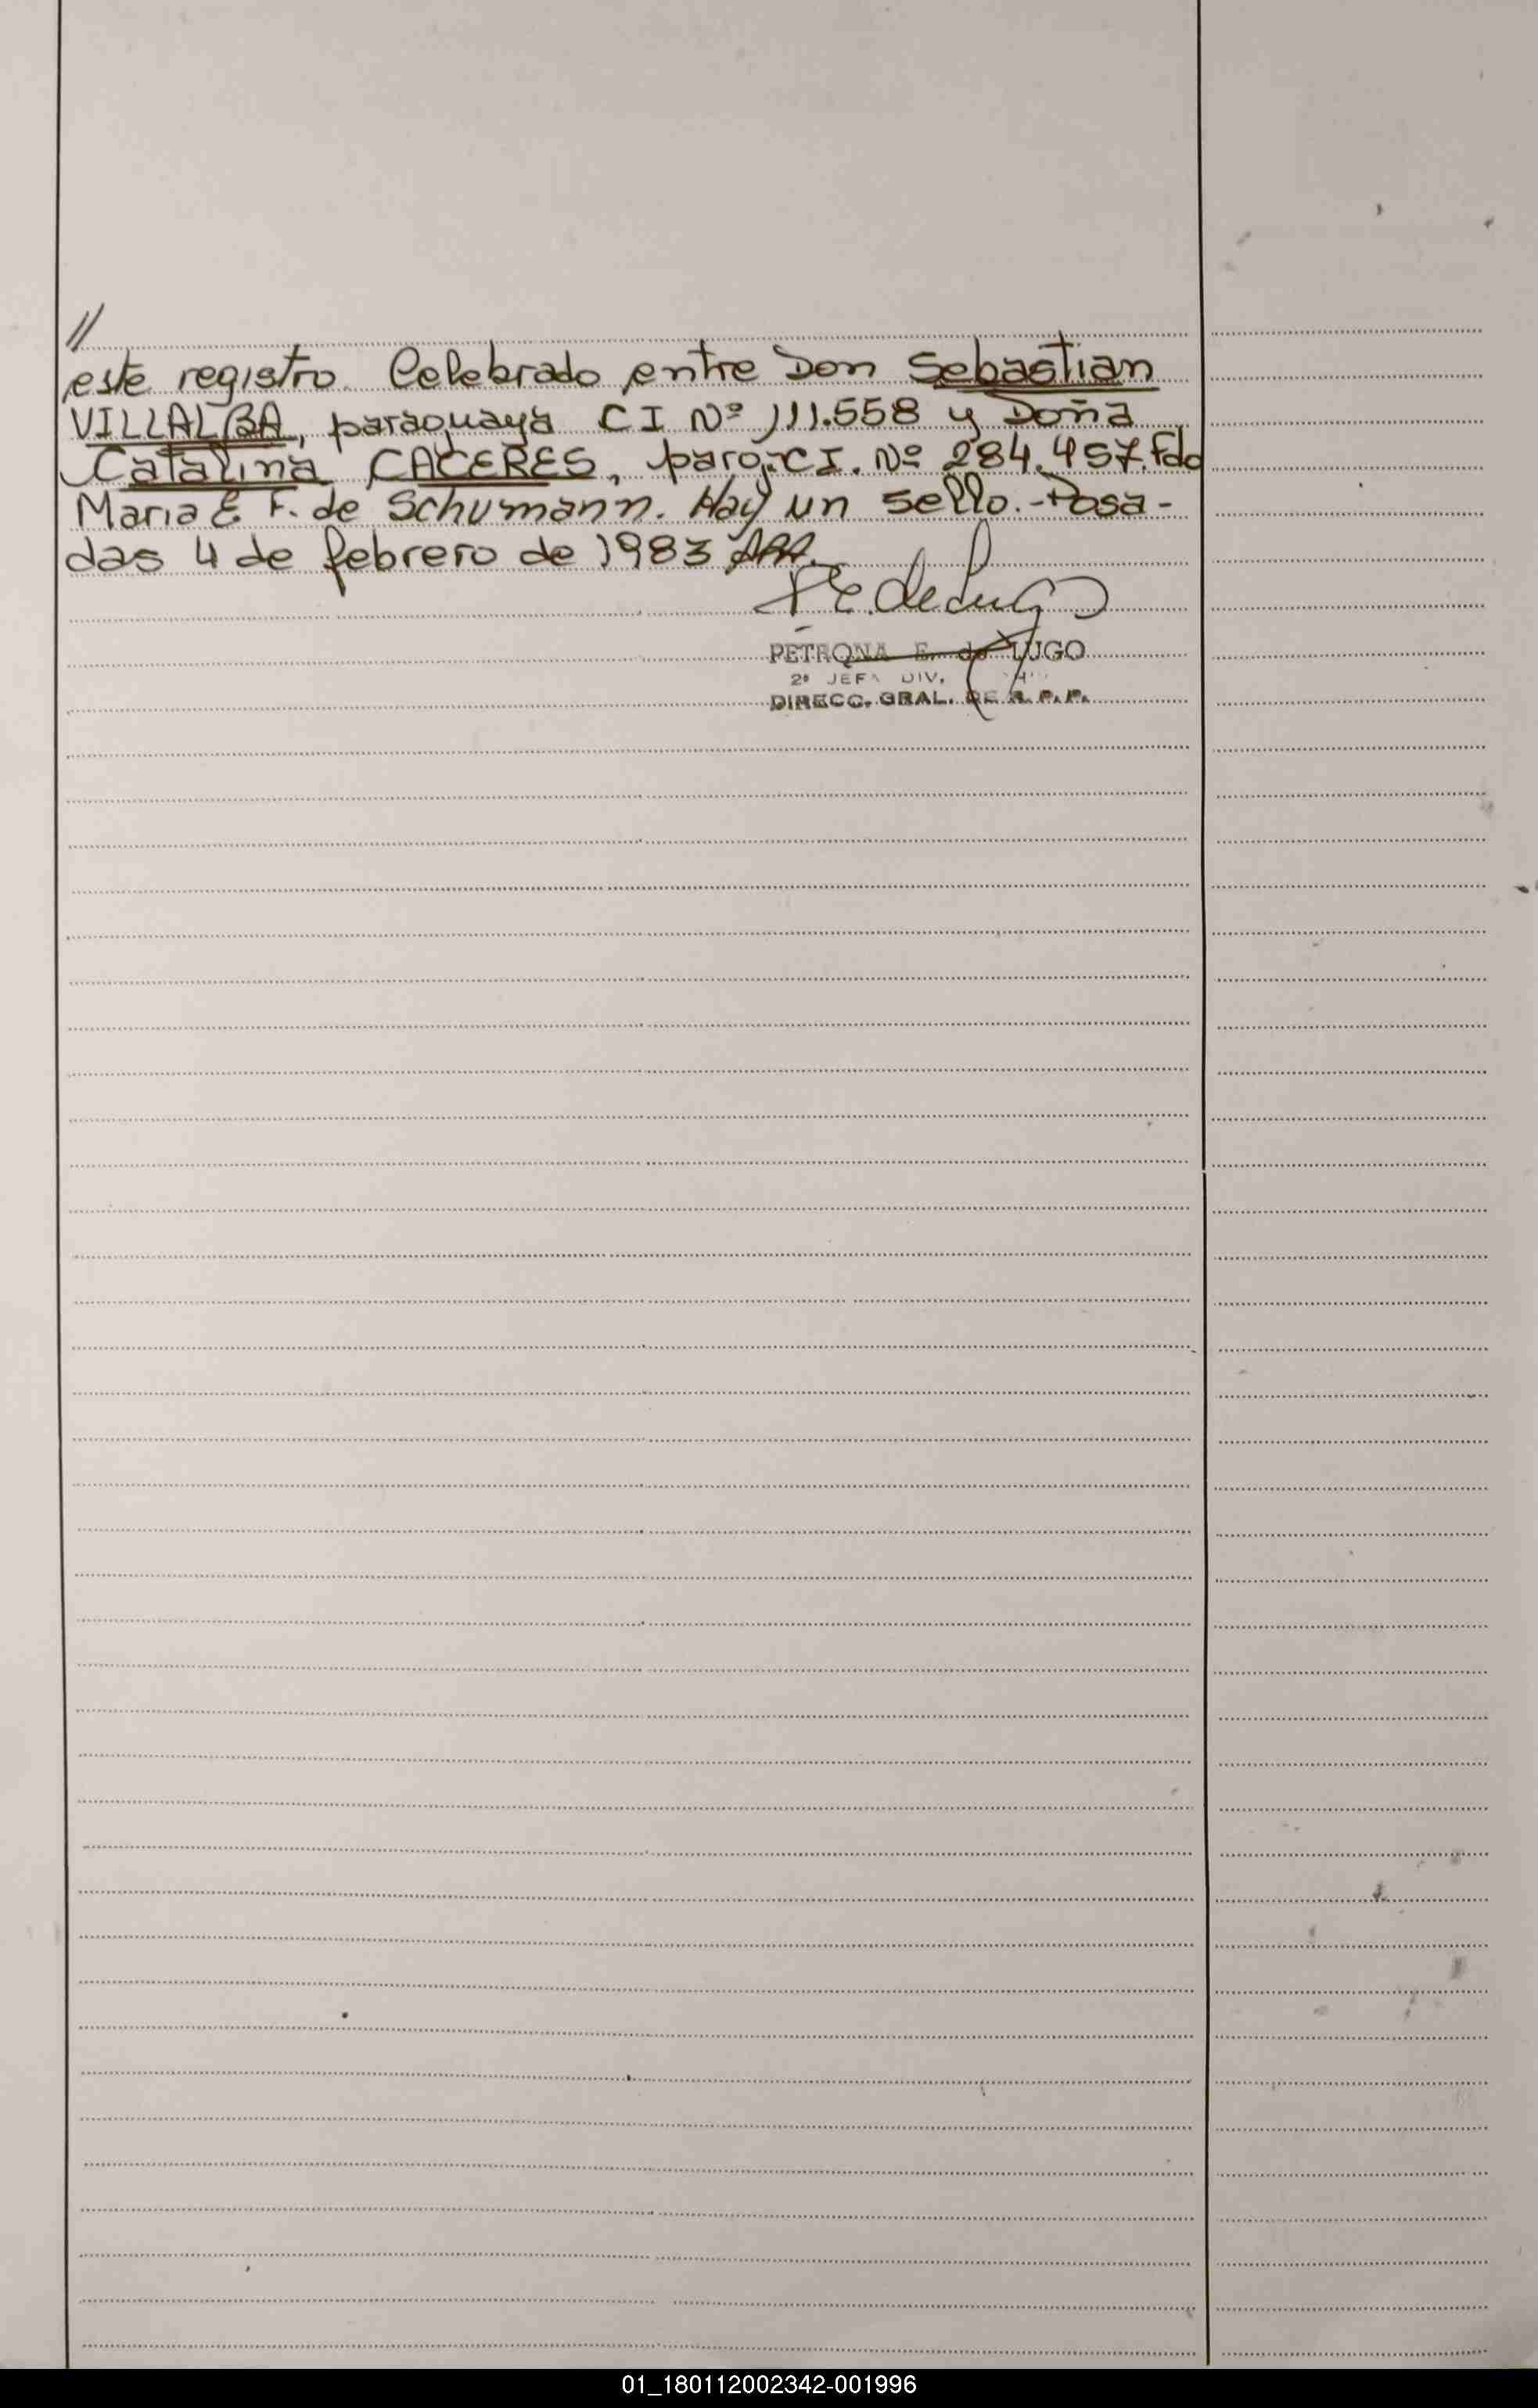 //
este registro. Celebrado entre Don Sebastian
VILLALBA, paraguaya CI Nº 111.558 y Doña
Catalina CACERES, parag. CI. Nº 284.457. Fdo
Maria E. F. de Schumann. Hay un sello.-Posa-
das 4 de febrero de 1983
P E. de Lugo
PETRONA E. de LUGO
2º JEFA DIV.
DIRECC. GRAL. DE R. P. P.
01_180112002342-001996